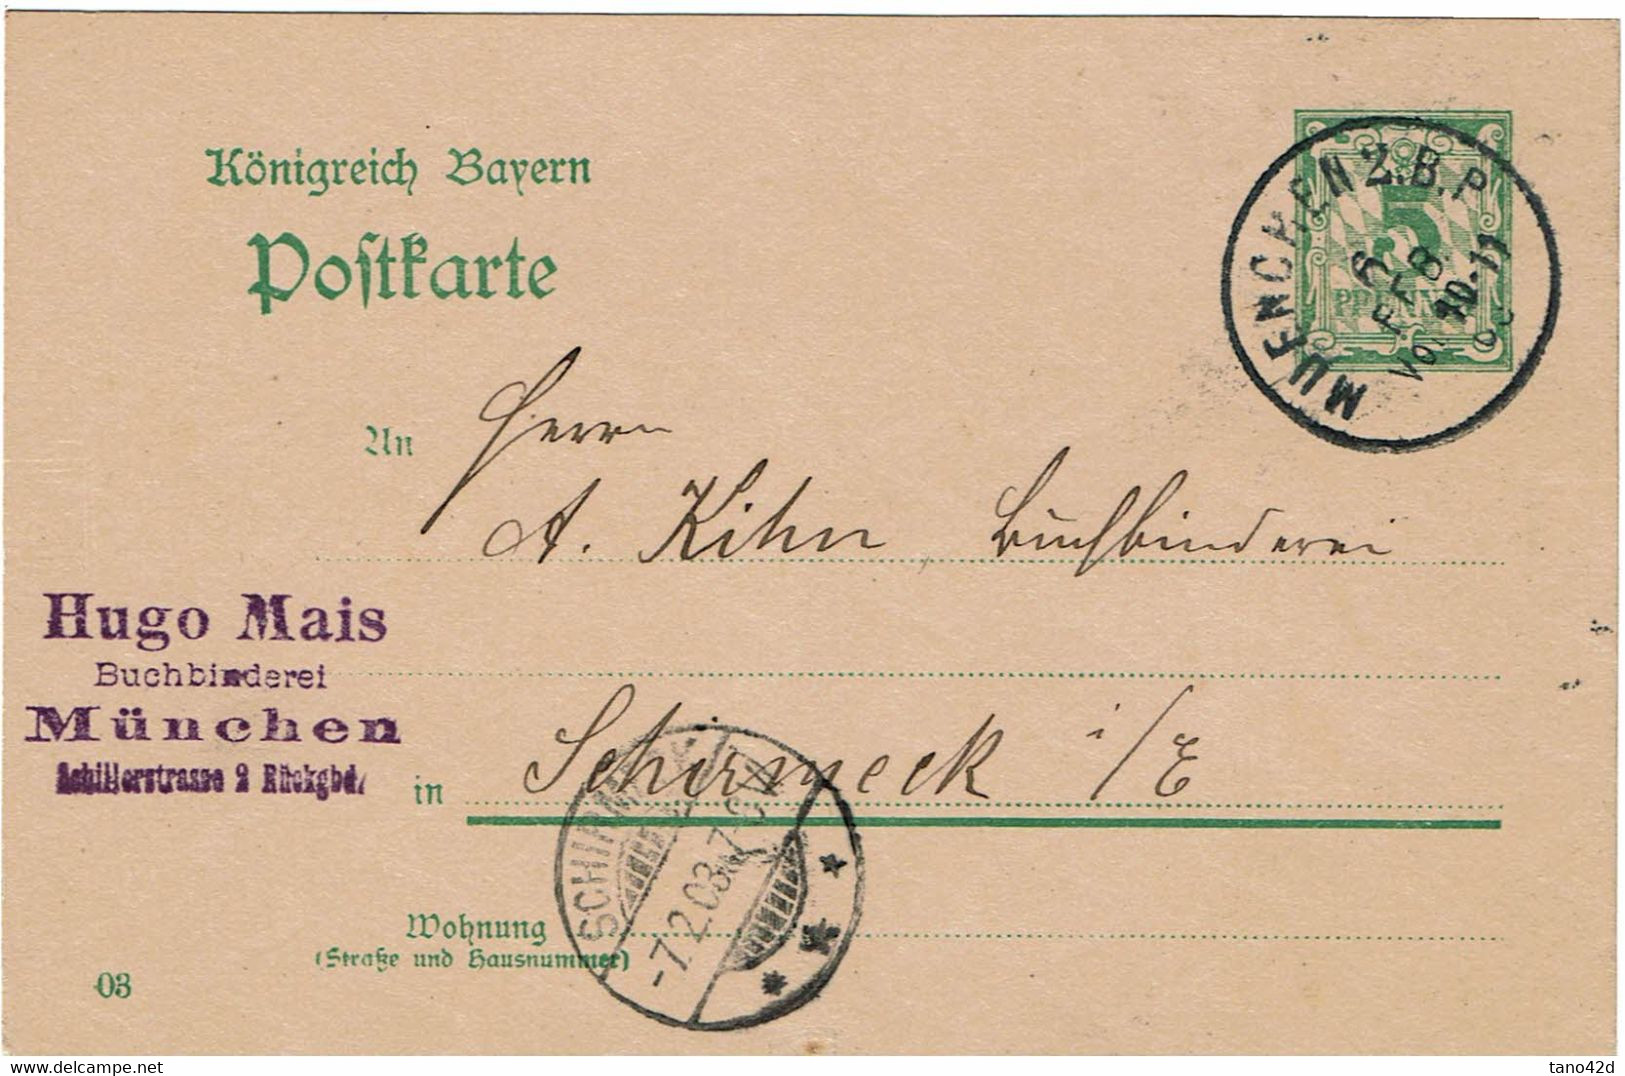 Königreich Bayern
Postkarte
MUENCHEN 2.B.P.
6
FEB
VOR 10-11
03
5
PFENNIG
An Herrn
A. Kihn Buchbinderei
Hugo Mais
Buchbinderei
München
Schillerstrasse 2 Rückgbd.
in Schirmeck i/E
SCHIRMECK
-7.2.03.7-8 V
Wohnung
(Straße und Hausnummer)
03
tano42d